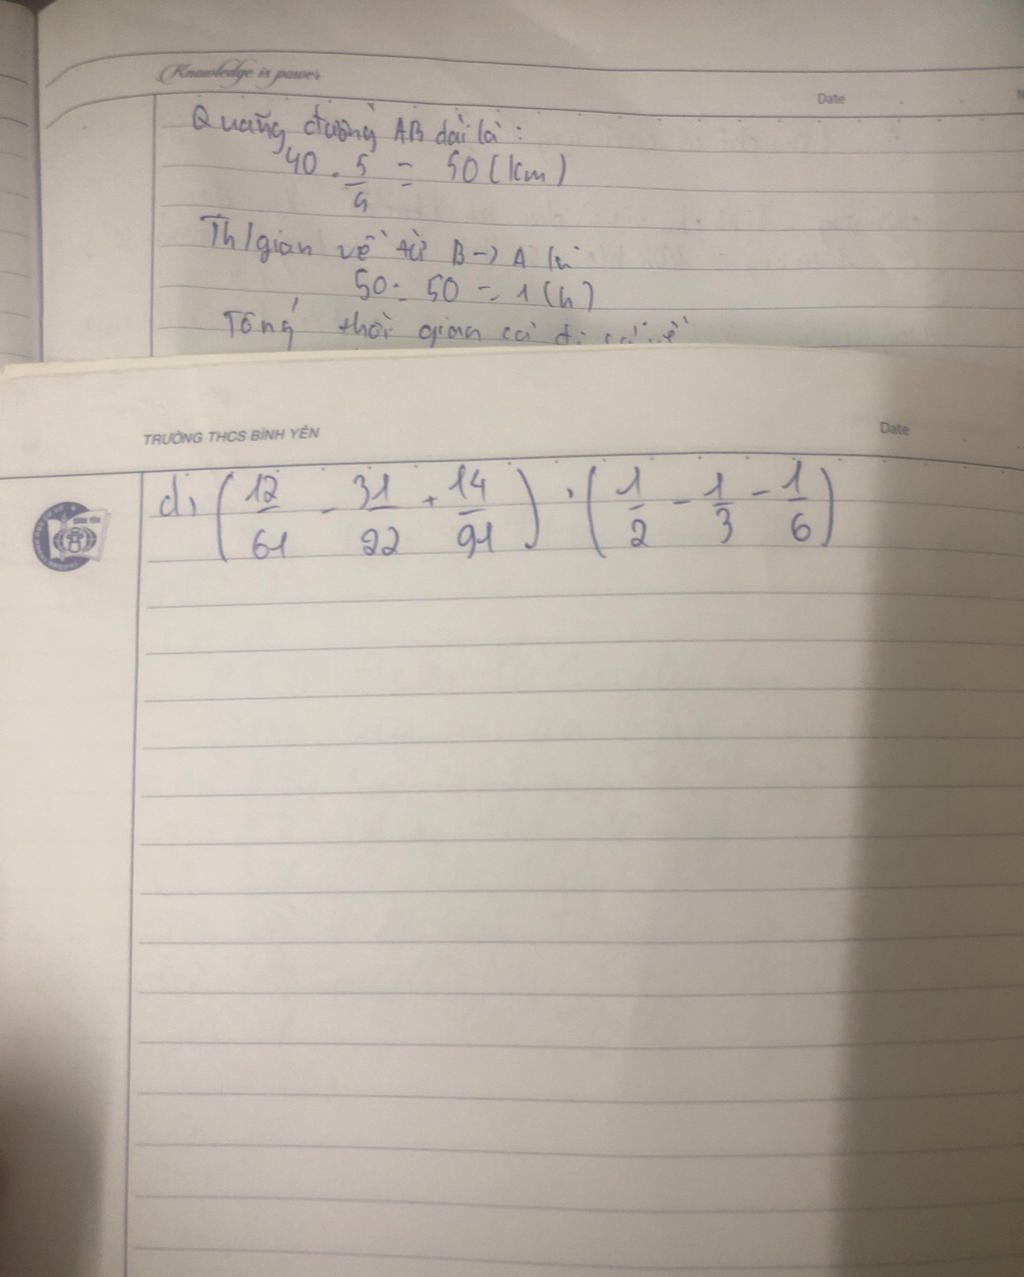 Knowledge is power
Date
Quãng đường AB dài là:
40 . 5/4 = 50 (km)
Th/gian về từ B -> A là
50 : 50 = 1 (h)
Tổng thời gian cả đi cả về
TRƯỜNG THCS BÌNH YÊN
Date
d, (12/61 - 31/22 + 14/91) . (1/2 - 1/3 - 1/6)